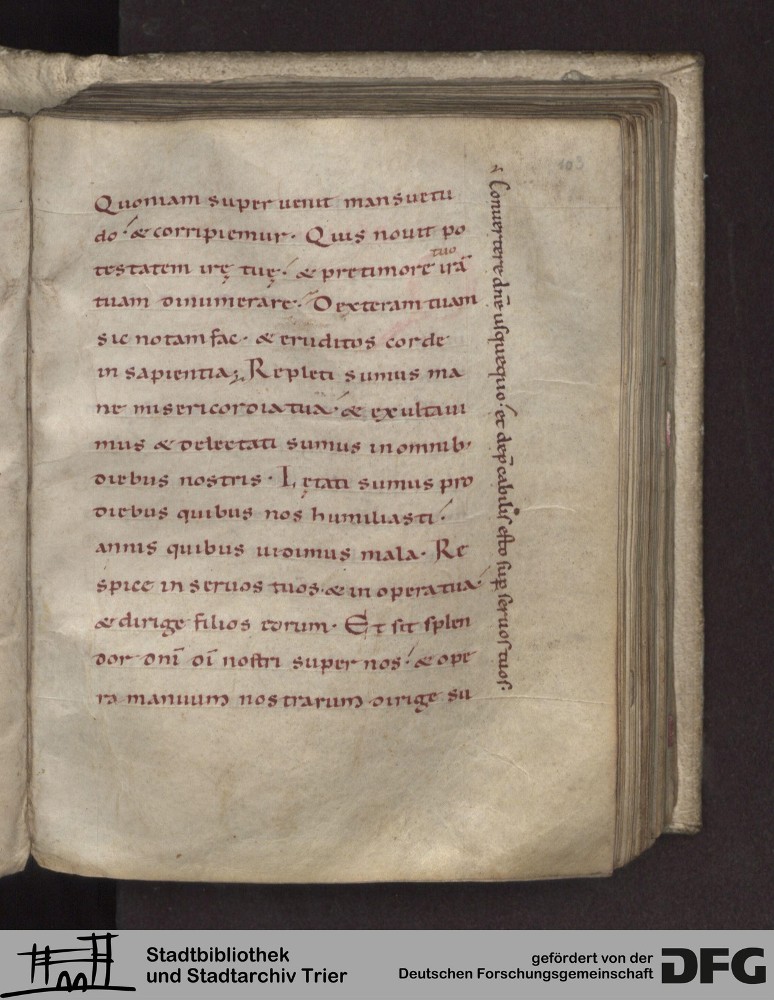 103
Quoniam super uenit mansuetu
do· & corripiemur· Quis nouit po
tuo
testatem irę tuę· & pretimore irā
tuam dinumerare· Dexteram tuam
sic notam fac· & eruditos corde
in sapientia; Repleti sumus ma
ne misericordia tua· & exultaui
mus & delectati sumus in omnib·
diebus nostris· Lętati sumus pro
diebus quibus nos humiliasti·
annis quibus uidimus mala· Re
spice in seruos tuos· & in opera tua·
& dirige filios eorum· Et sit splen
dor dn̄i dī nostri super nos· & ope
ra manuum nostrarum dirige su
Conuertere dn̄e usquequo· et dep̄cabilis esto sup̱ seruos tuos·
Stadtbibliothek
und Stadtarchiv Trier
gefördert von der
Deutschen Forschungsgemeinschaft
DFG